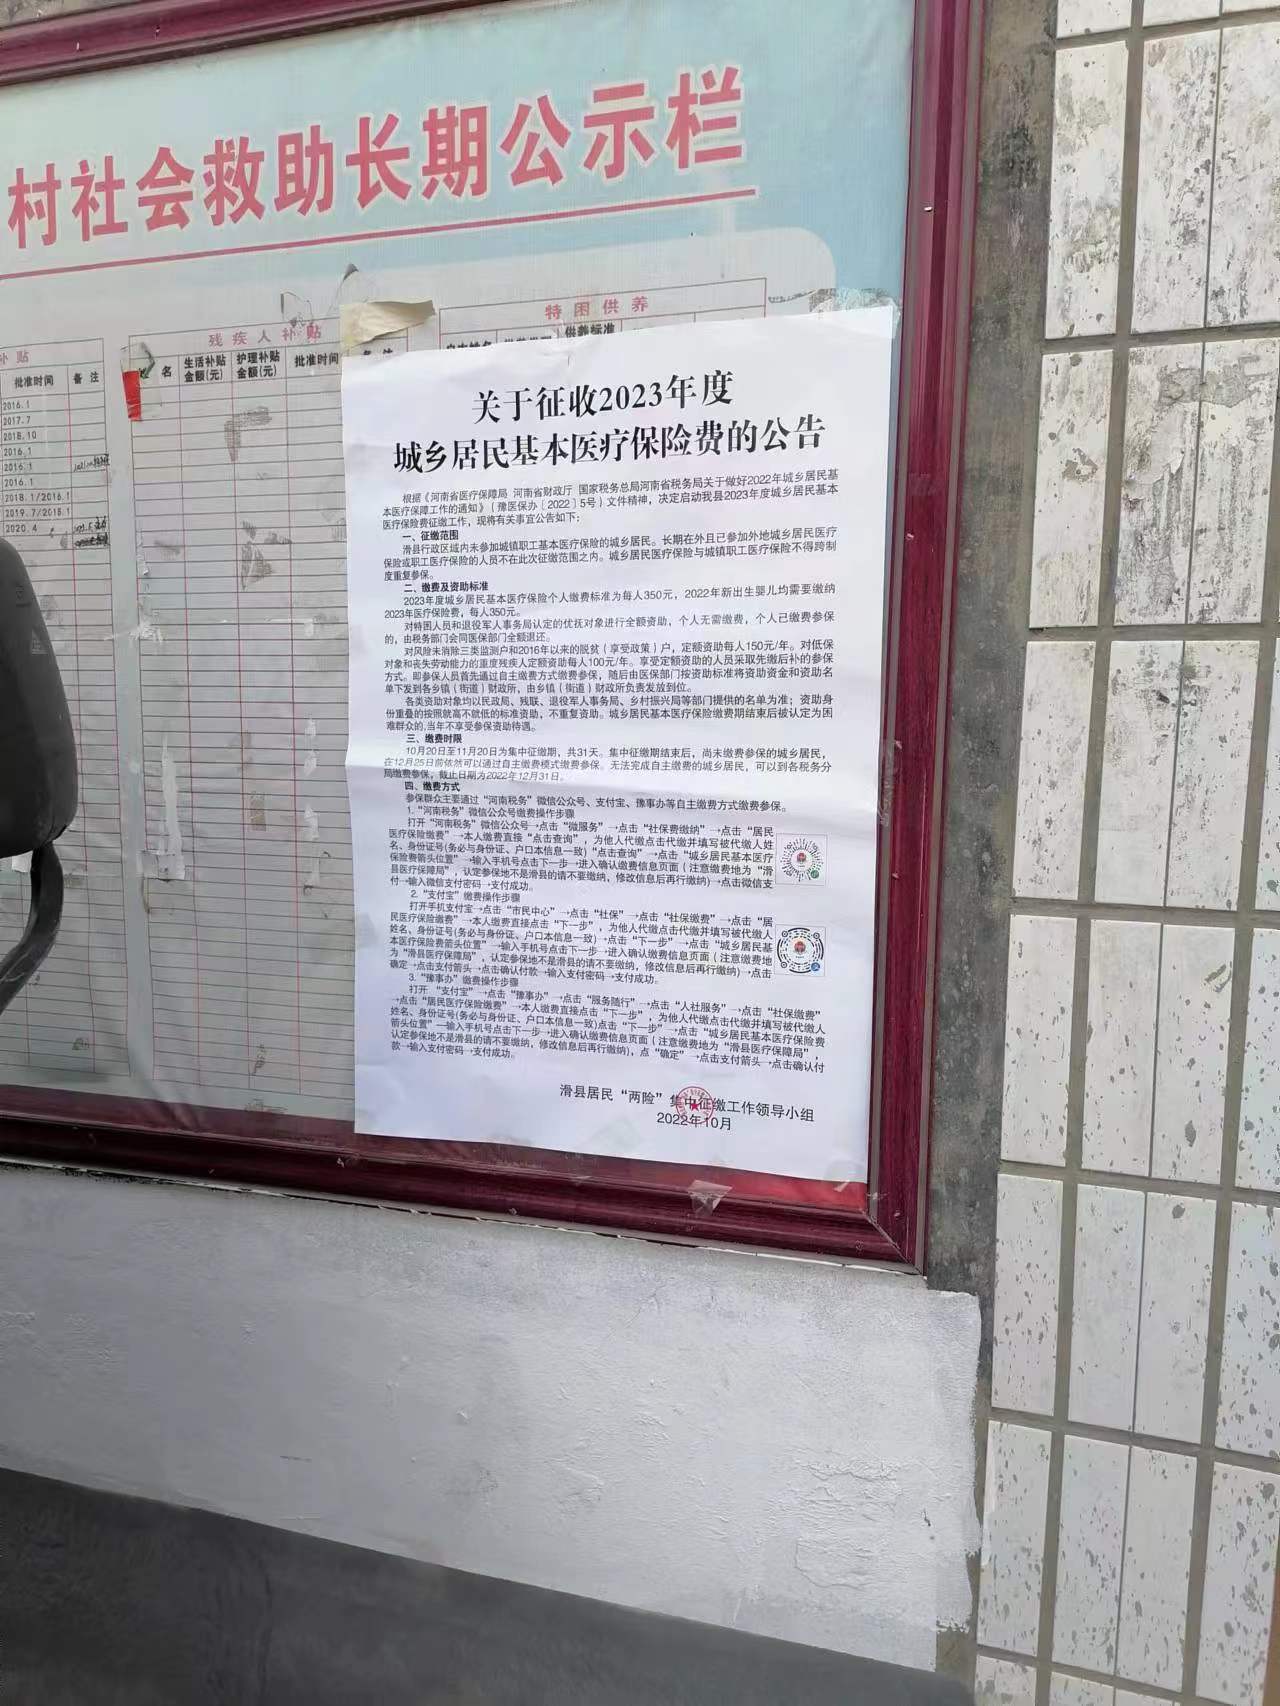 村社会救助长期公示栏
补贴
批准时间 备注
2016.1
2017.7
2018.10
2016.1
2016.1
2016.1
2018.1/2016.1
2019.7/2018.1
2020.4
残疾人补贴
姓名 生活补贴金额(元) 护理补贴金额(元) 批准时间 备注
特困供养
供养标准
关于征收2023年度
城乡居民基本医疗保险费的公告
根据《河南省医疗保障局 河南省财政厅 国家税务总局河南省税务局关于做好2022年城乡居民基
本医疗保障工作的通知》(豫医保办〔2022〕5号)文件精神,决定启动我县2023年度城乡居民基本
医疗保险费征缴工作,现将有关事宜公告如下:
一、征缴范围
滑县行政区域内未参加城镇职工基本医疗保险的城乡居民。长期在外且已参加外地城乡居民医疗
保险或职工医疗保险的人员不在此次征缴范围之内。城乡居民医疗保险与城镇职工医疗保险不得跨制
度重复参保。
二、缴费及资助标准
2023年度城乡居民基本医疗保险个人缴费标准为每人350元,2022年新出生婴儿均需要缴纳
2023年医疗保险费,每人350元。
对特困人员和退役军人事务局认定的优抚对象进行全额资助,个人无需缴费,个人已缴费参保
的,由税务部门会同医保部门全额退还。
对风险未消除三类监测户和2016年以来的脱贫(享受政策)户,定额资助每人150元/年。对低保
对象和丧失劳动能力的重度残疾人定额资助每人100元/年。享受定额资助的人员采取先缴后补的参保
方式。即参保人员首先通过自主缴费方式缴费参保,随后由医保部门按资助标准将资助资金和资助名
单下发到各乡镇(街道)财政所,由乡镇(街道)财政所负责发放到位。
各类资助对象均以民政局、残联、退役军人事务局、乡村振兴局等部门提供的名单为准;资助身
份重叠的按照就高不就低的标准资助,不重复资助。城乡居民基本医疗保险缴费期结束后被认定为困
难群众的,当年不享受参保资助待遇。
三、缴费时限
10月20日至11月20日为集中征缴期,共31天。集中征缴期结束后,尚未缴费参保的城乡居民,
在12月25日前依然可以通过自主缴费模式缴费参保。无法完成自主缴费的城乡居民,可以到各税务分
局缴费参保,截止日期为2022年12月31日。
四、缴费方式
参保群众主要通过“河南税务”微信公众号、支付宝、豫事办等自主缴费方式缴费参保。
1.“河南税务”微信公众号缴费操作步骤
打开“河南税务”微信公众号→点击“微服务”→点击“社保费缴纳”→点击“居民
医疗保险缴费”→本人缴费直接“点击查询”,为他人代缴点击代缴并填写被代缴人姓
名、身份证号(务必与身份证、户口本信息一致)“点击查询”→点击“城乡居民基本医疗
保险费箭头位置”→输入手机号点击下一步→进入确认缴费信息页面(注意缴费地为“滑
县医疗保障局”,认定参保地不是滑县的请不要缴纳,修改信息后再行缴纳)→点击微信支
付→输入微信支付密码→支付成功。
2.“支付宝”缴费操作步骤
打开手机支付宝→点击“市民中心”→点击“社保”→点击“社保缴费”→点击“居
民医疗保险缴费”→本人缴费直接点击“下一步”,为他人代缴点击代缴并填写被代缴人
姓名、身份证号(务必与身份证、户口本信息一致)→点击“下一步”→点击“城乡居民基
本医疗保险费箭头位置”→输入手机号点击下一步→进入确认缴费信息页面(注意缴费地
为“滑县医疗保障局”,认定参保地不是滑县的请不要缴纳,修改信息后再行缴纳)→点击
确定→点击支付箭头→点击确认付款→输入支付密码→支付成功。
3.“豫事办”缴费操作步骤
打开“支付宝”→点击“豫事办”→点击“服务随行”→点击“人社服务”→点击“社保缴费”
→点击“居民医疗保险缴费”→本人缴费直接点击“下一步”,为他人代缴点击代缴并填写被代缴人
姓名、身份证号(务必与身份证、户口本信息一致)点击“下一步”→点击“城乡居民基本医疗保险费
箭头位置”—输入手机号点击下一步→进入确认缴费信息页面(注意缴费地为“滑县医疗保障局”,
认定参保地不是滑县的请不要缴纳,修改信息后再行缴纳),点“确定”→点击支付箭头→点击确认付
款→输入支付密码→支付成功。
滑县居民“两险”集中征缴工作领导小组
2022年10月